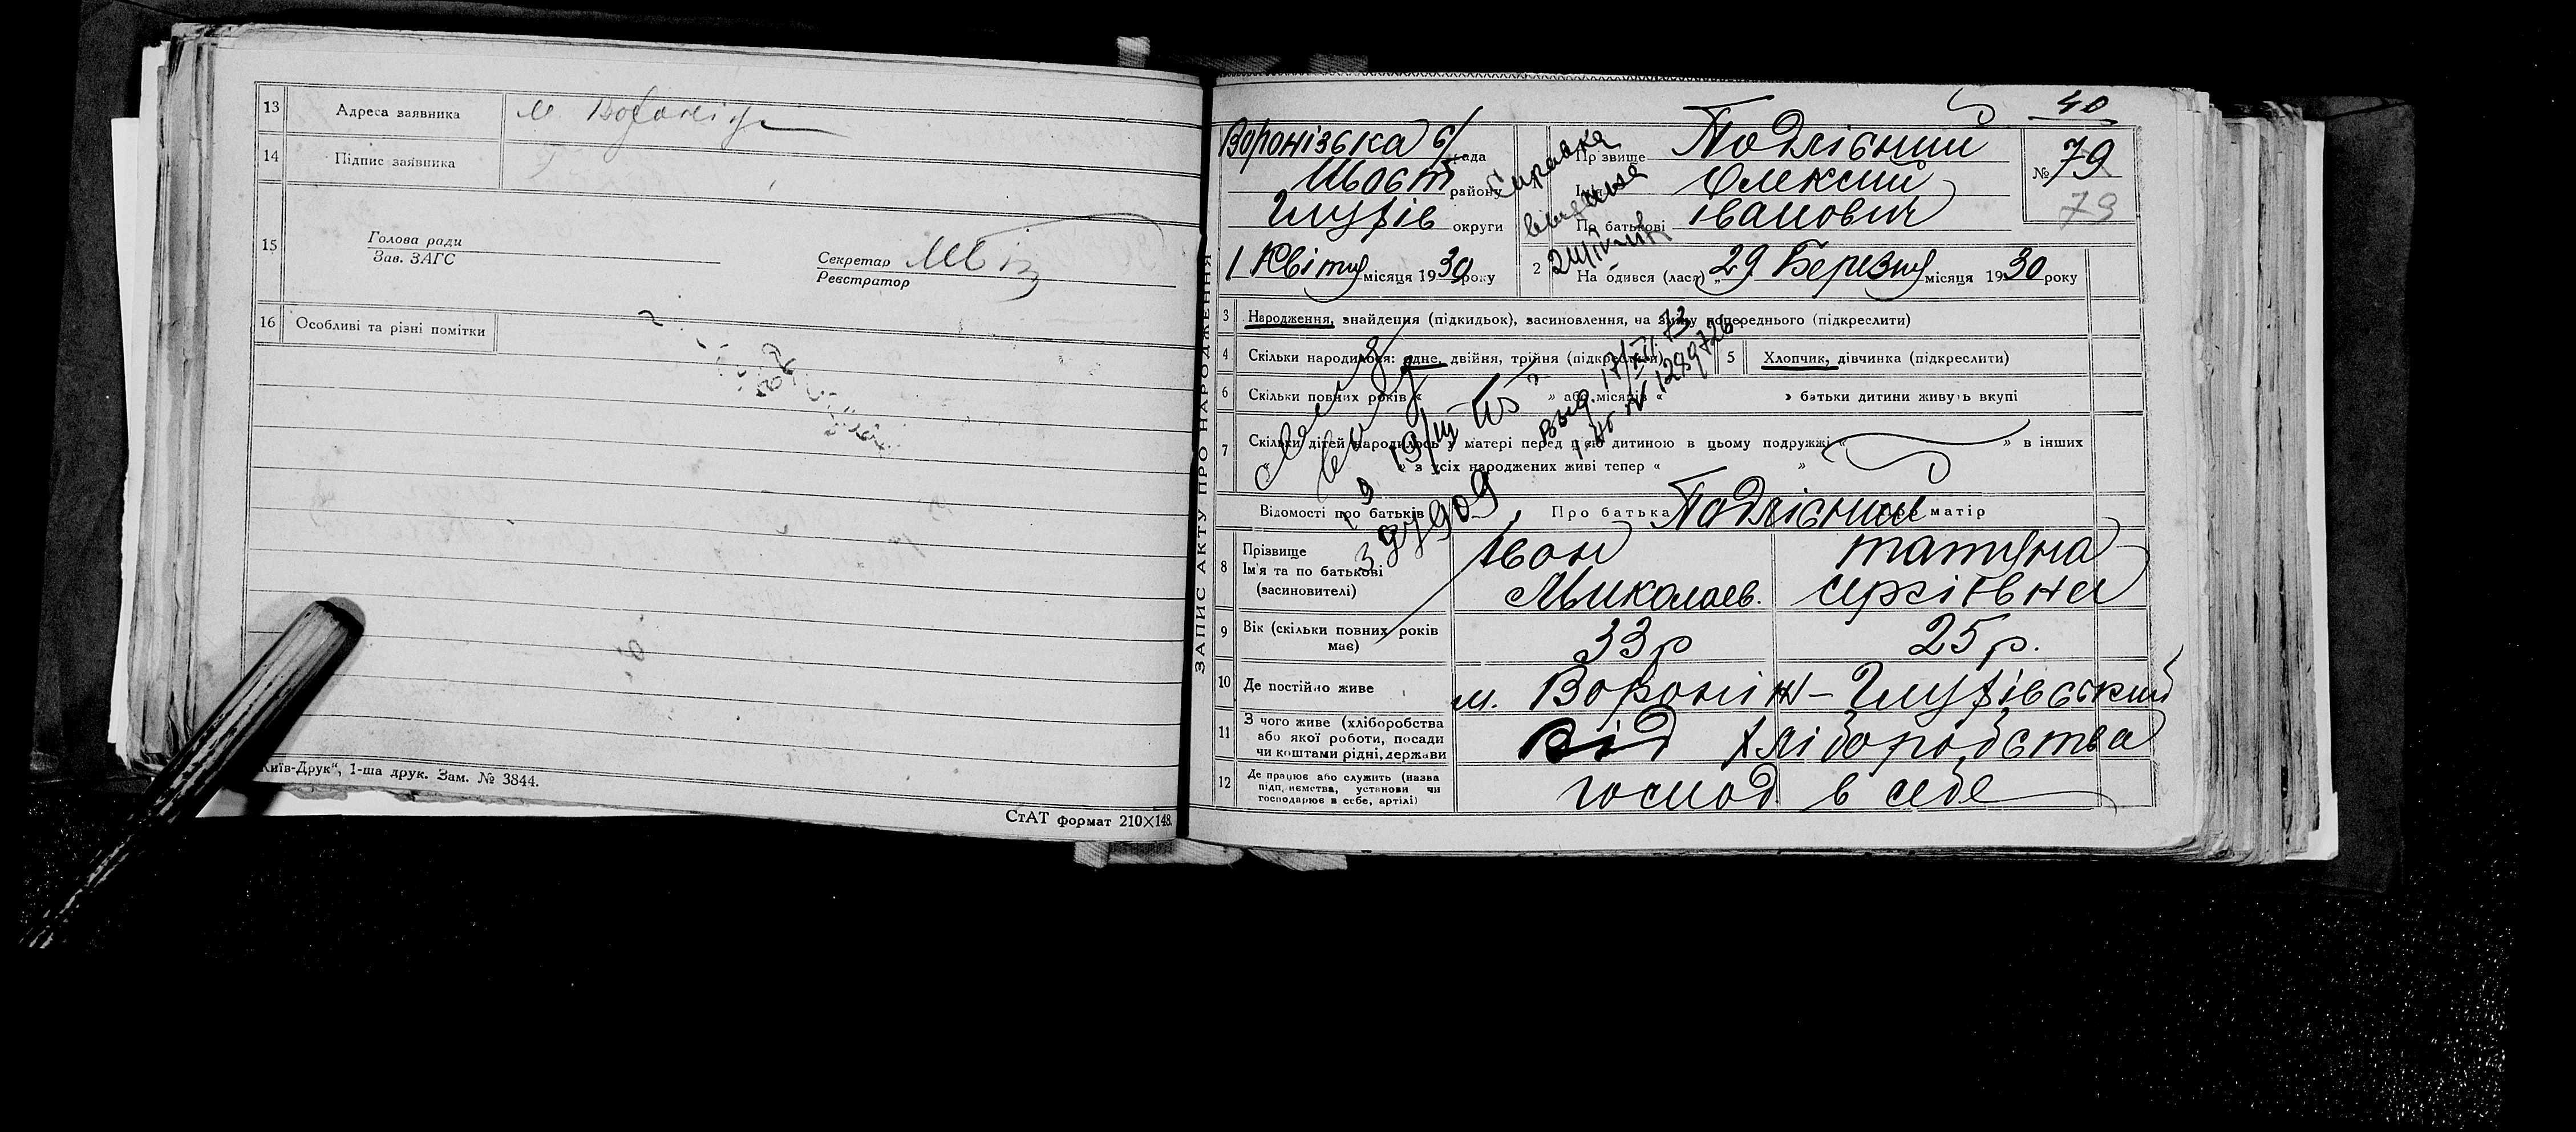 13 Адреса заявника м Вороніж
14 Підпис заявника
15 Голова ради
Зав. ЗАГС
Секретар
Реєстратор
16 Особливі та різні помітки
"Київ-Друк", 1-ша друк. Зам. № 3844.
СтАТ формат 210×148.
ЗАПИС АКТУ ПРО НАРОДЖЕННЯ
40
Воронізька с/рада
Шост району
Глухів округи
1 Квітня місяця 1930 року
Справка
Прізвище Подлісний
Ім'я Олексій
По батькові Іванович
№ 79
79
2 Народився (лася) „29 Березня місяця 1930 року
3 Народження, знайдення (підкидьок), засиновлення, на зміну попереднього (підкреслити)
4 Скільки народилося: одне, двійня, трійня (підкреслити)
5 Хлопчик, дівчинка (підкреслити)
6 Скільки повних років « » або місяців « » батьки дитини живуть вкупі
7 Скільки дітей народилось у матері перед цією дитиною в цьому подружжі « » в інших
» з усіх народжених живі тепер « »
Выд. 17/XII.73
№ 1289726
19/III
397909
Відомості про батьків Про батька Подлісний матір
8 Прізвище
Ім'я та по батькові
(засиновителі)
Іван
Миколаєв.
Татяна
Сергіївна
9 Вік (скільки повних років має) 33 р 25 р.
10 Де постійно живе м. Вороніж – Глухівський
11 З чого живе (хліборобства
або якої роботи, посади
чи коштами рідні, держави
від хліборобства
12 Де працює або служить (назва
підприємства, установи чи
господарює в себе, артілі)
господ в себе